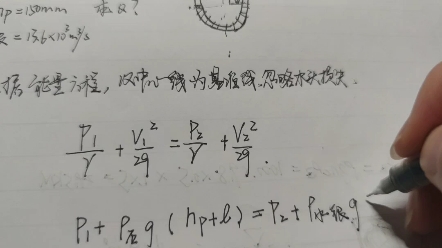 hp=150mm 求Q?
=13.6×10³m³/s
据能量方程,以中心线为基准线,忽略水头损失.
P₁/γ + V₁²/2g = P₂/γ + V₂²/2g.
P₁+P石g(hp+l)=P₂+P水银g